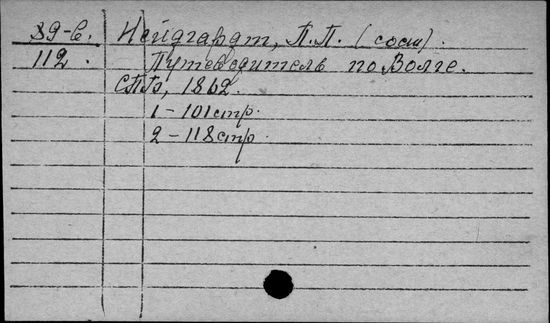 39-6. Нейдгардт, П.П. (сост).
112. Путеводитель по Волге.
СПб, 1862.
1-101стр.
2-118стр.